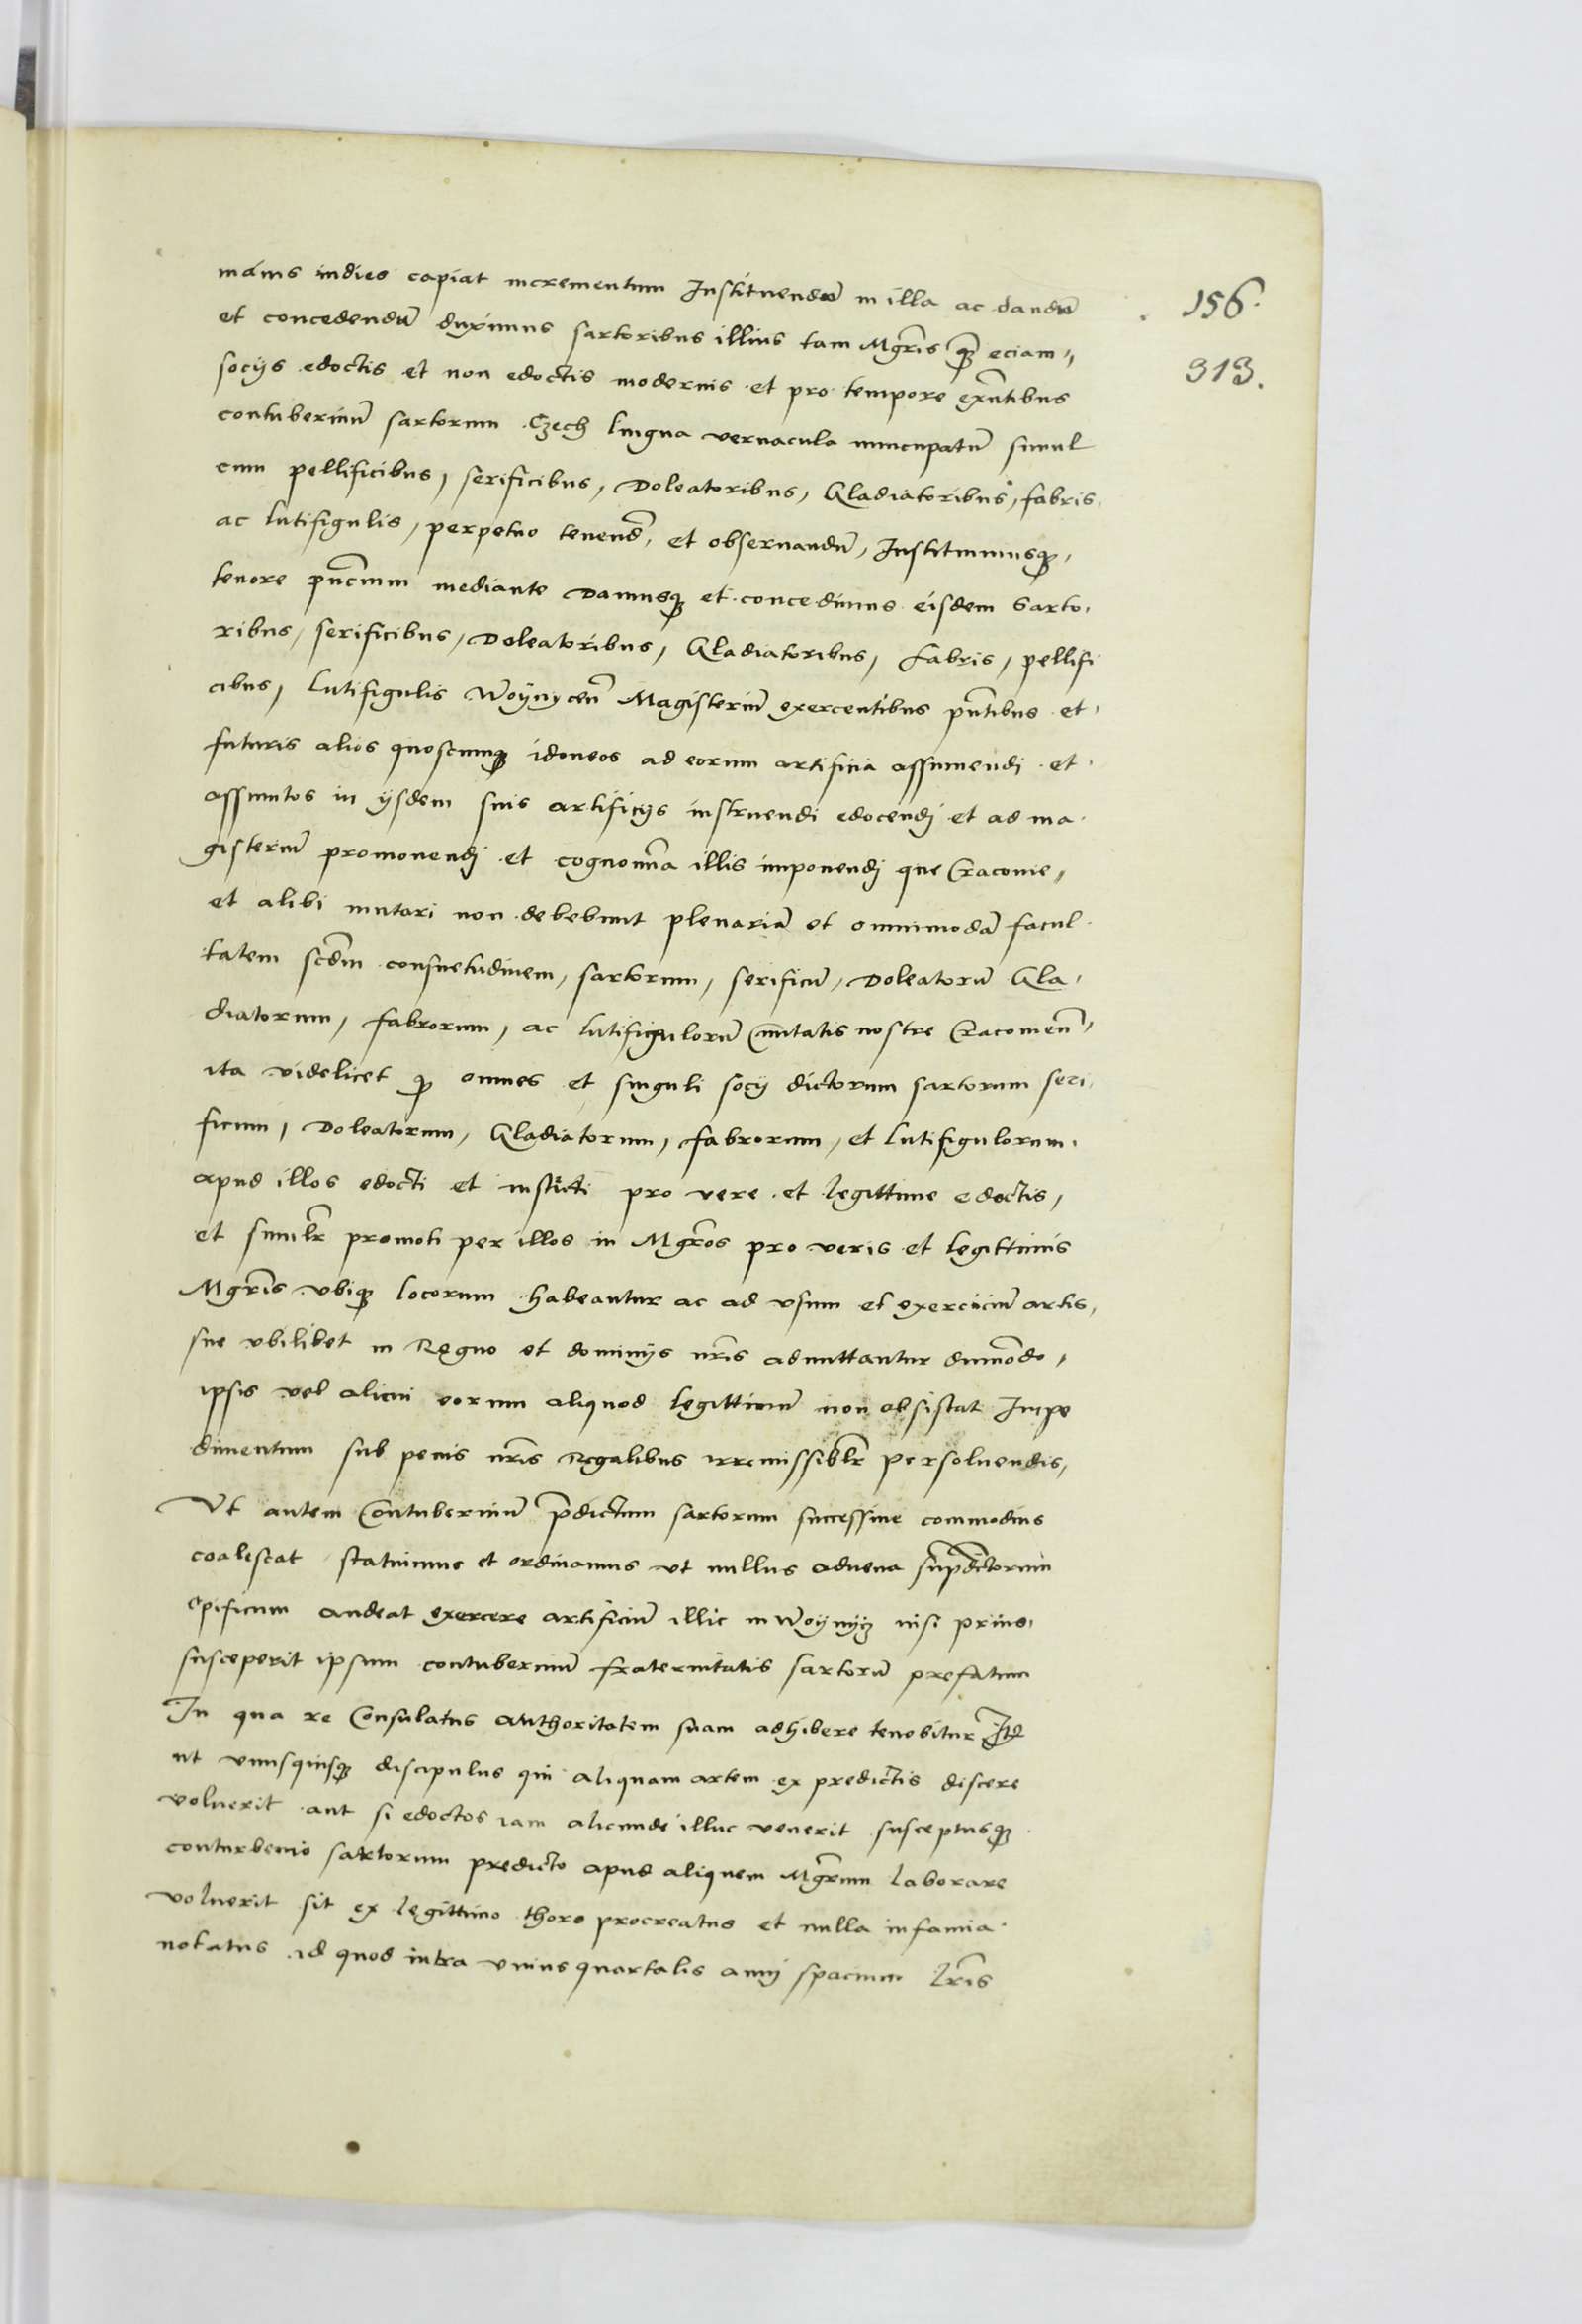 maius indies capiat incrementum Instituendũ in illa ac dandũ
156.
et concedendũ duximus sartoribus illius tam Mgr̃is q̃ eciam,,
313.
socijs edoctis et non edoctis modernis et pro tempore exñtibus
contuberniũ sartorum Czech lingua vernacula nuncupatũ simul
cum pellificibus, serificibus, Doleatoribus, Gladiatoribus, fabris,
ac lutifigulis, perpetuo tenend̃, et obseruandũ, Instituimusq̃,
tenore pñcium mediante Damusq̃ et concedimus eisdem Sarto,
ribus, serificibus, Doleatoribus, Gladiatoribus, Fabris, pellifi
cibus, lutifigulis Woynyceñ Magisteriũ exercentibus pñtibus et,
futuris alios quoscunq̃ idoneos ad eorum artificia assumendi et,
assumtos in ijsdem suis artificijs instruendi edocendj et ad ma,
gisteriũ promouendj et cognom̃a illis imponendj que Cracouie,
et alibi mutari non debebunt plenariã et omnimodã facul
tatem scd̃m consuetudinem, sartorum, serificũ, Doleatorũ Gla,
diatorum, fabrorum, ac lutifigulorũ Ciuitatis nostre Cracouieñ,
ita videlicet q̃ omnes et singuli socij dictorum sartorum seri,
ficum, Doleatorum, Gladiatorum, fabrorum, et lutifigulorum,
apud illos edocti et instructi pro vere et legittime edoctis,
et similr̃ promoti per illos in Mgr̃os pro veris et legittimis
Mgr̃is vbiq̃ locorum habeantur ac ad vsum et exerciciũ artis,
sue vbilibet in Regno et dominijs nr̃is admittantur dum̃odo,
ipsis vel alicui eorum aliquod legittimũ non obsistat Impe
dimentum sub penis nr̃is Regalibus irremissiblr̃ persoluendis,
Vt autem Contuberniũ p̃dictum sartorum successiue commodius
coalescat statuimus et ordinamus vt nullus aduena sup̃dictorum
opificum audeat exercere artificiũ illic in Woynijcz nisi prius,
susceperit ipsum contuberniũ fraternitatis sartorũ prefatum
In qua re Consulatus authoritatem suam adhibere tenebitur Itẽ
ut vnusquisq̃ discipulus qui aliquam artem ex predictis discere
voluerit aut si edoctos iam alicunde illuc venerit susceptusq̃
conturbenio sartorum predicto apud aliquem Mgr̃um laborare
voluerit sit ex legittimo thoro procreatus et nulla infamia
notatus id quod intra vnius quartalis annj spacium lr̃is